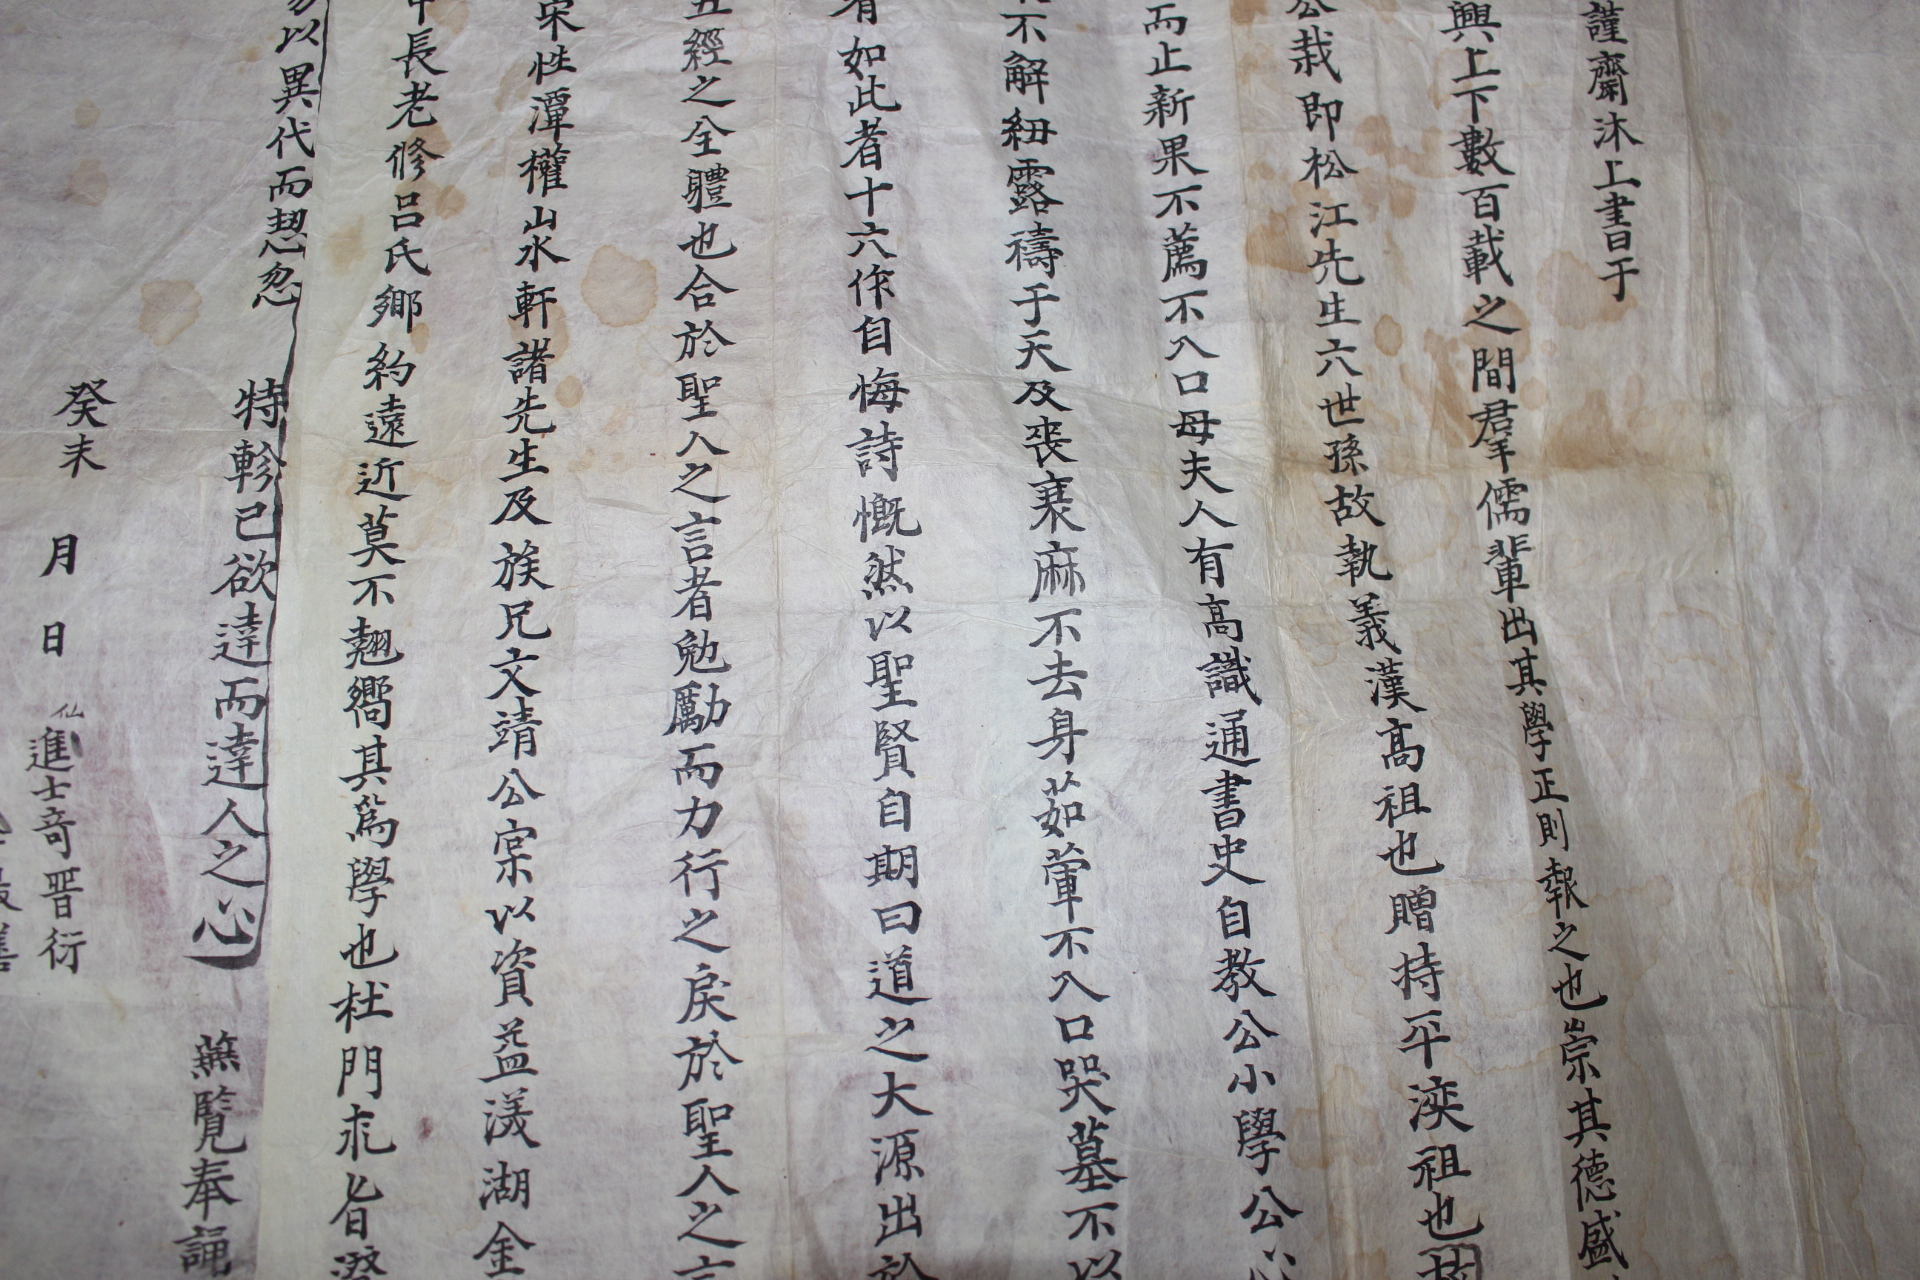 謹齋沐上書于
興上下數百載之間羣儒輩出其學正則報之也崇其德盛
公栽即松江先生六世孫故執義漢高祖也贈持平渶祖也
而止新果不薦不入口母夫人有高識通書史自教公小學公心
不解紐露禱于天及喪衰麻不去身茹葷不入口哭墓不以
有如此者十六作自悔詩慨然以聖賢自期曰道之大源出於
五經之全體也合於聖人之言者勉勵而力行之戾於聖人之言
宋性潭權山水軒諸先生及族兄文靖公宲以資益渼湖金
中長老修呂氏鄉約遠近莫不翹嚮其爲學也杜門求
以異代而恝忽
特軫已欲達而達人之心
癸未 月 日
蕪覽奉誦
仙進士奇晋衍